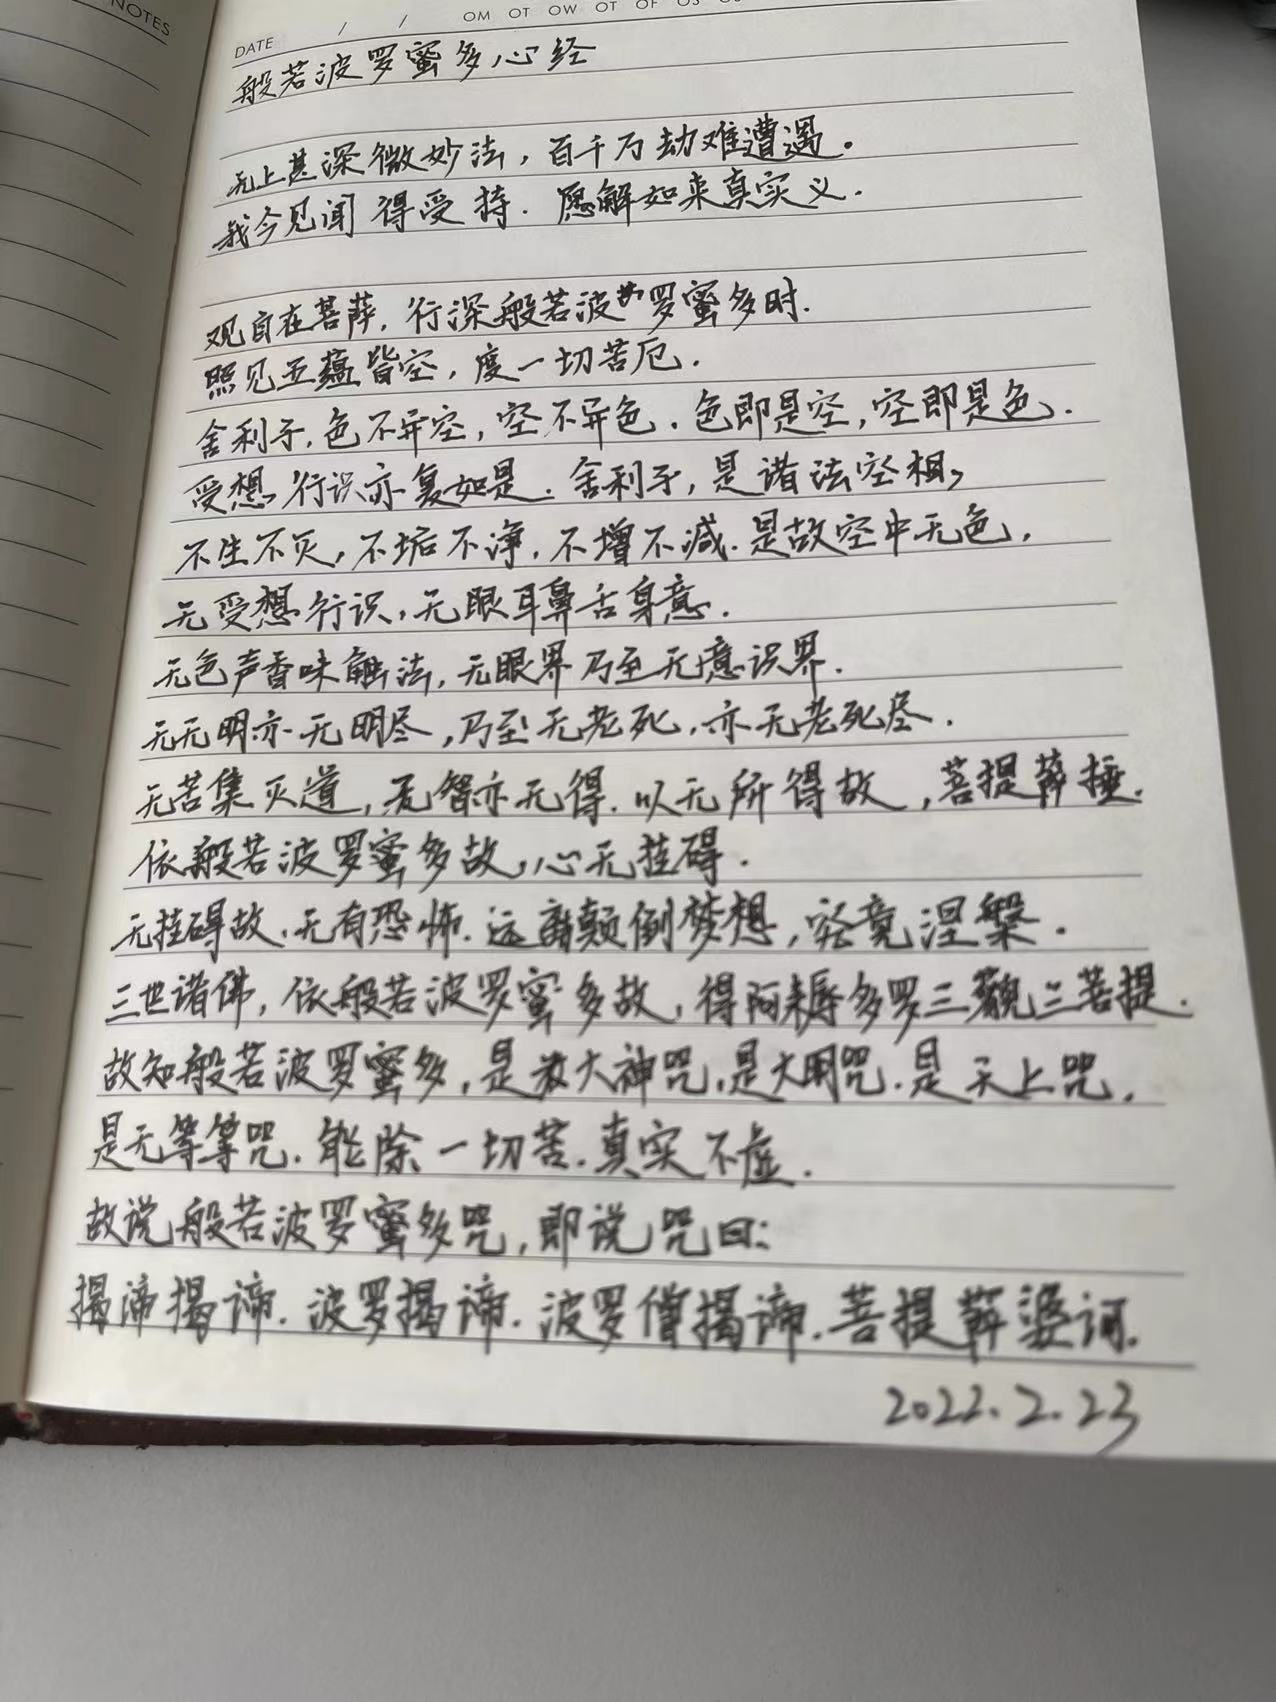 NOTES
DATE / / OM OT OW OT OF OS
般若波罗蜜多心经
无上甚深微妙法，百千万劫难遭遇。
我今见闻得受持．愿解如来真实义．
观自在菩萨，行深般若波罗蜜多时．
照见五蕴皆空，度一切苦厄．
舍利子，色不异空，空不异色．色即是空，空即是色．
受想行识亦复如是．舍利子，是诸法空相，
不生不灭，不垢不净，不增不减．是故空中无色，
无受想行识，无眼耳鼻舌身意．
无色声香味触法，无眼界乃至无意识界．
无无明亦无明尽，乃至无老死，亦无老死尽．
无苦集灭道，无智亦无得．以无所得故，菩提萨埵．
依般若波罗蜜多故，心无挂碍．
无挂碍故，无有恐怖．远离颠倒梦想，究竟涅槃．
三世诸佛，依般若波罗蜜多故，得阿耨多罗三藐三菩提．
故知般若波罗蜜多，是大神咒，是大明咒．是无上咒，
是无等等咒．能除一切苦．真实不虚．
故说般若波罗蜜多咒，即说咒曰：
揭谛揭谛．波罗揭谛．波罗僧揭谛．菩提萨婆诃．
2022.2.23